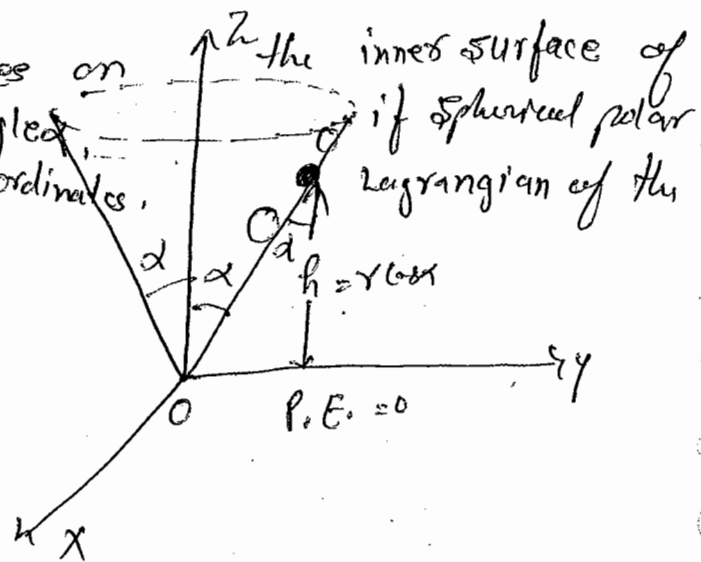 es on Z the inner surface of
gled, if spherical polar
ordinates. Lagrangian of the
α α α h = r cos α
O P.E. = 0 y
X